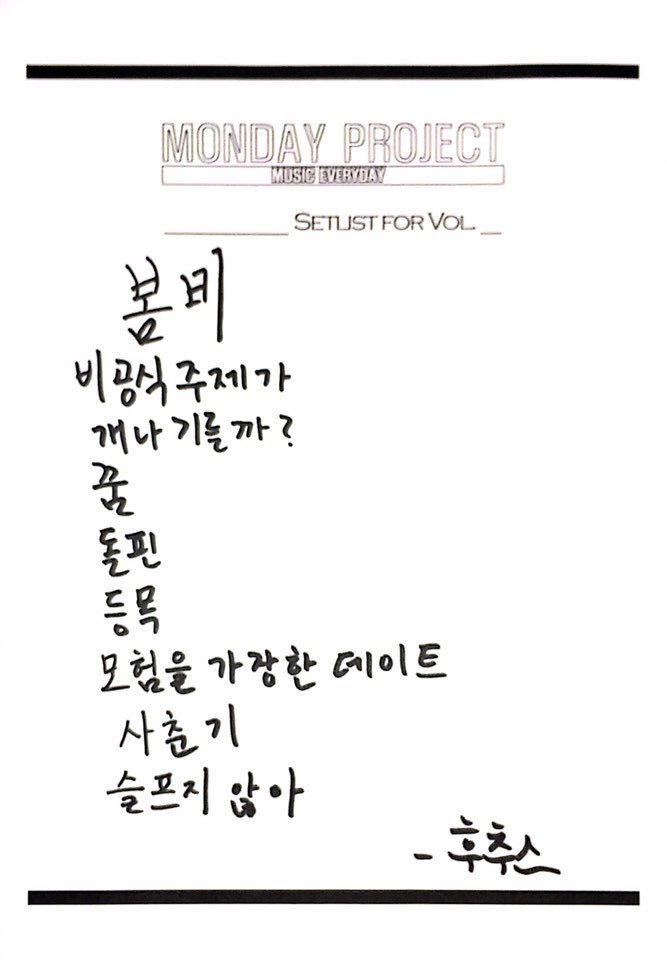 MONDAY PROJECT
MUSIC EVERYDAY
SETLIST FOR VOL.
봄비
비공식주제가
개나 기를까?
꿈
돌핀
등목
모험을 가장한 데이트
사춘기
슬프지 않아
- 후추스